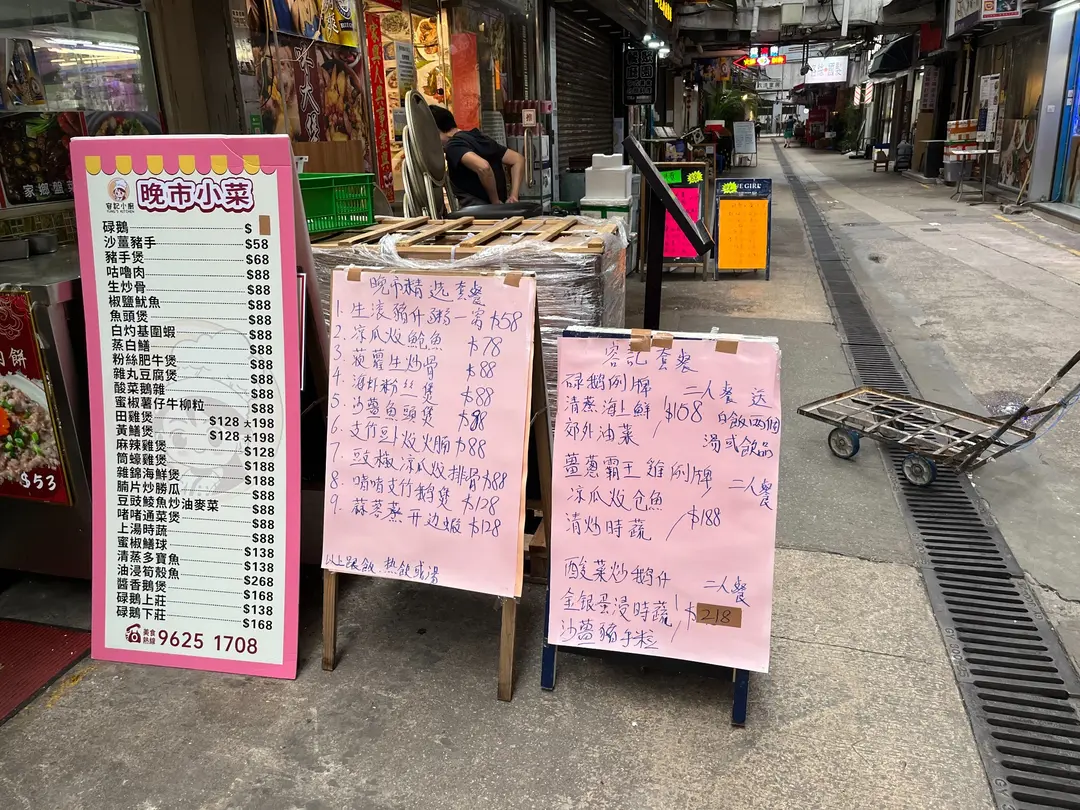 容記小廚
晚市小菜
碌鵝 $
沙薑豬手 $58
豬手煲 $68
咕嚕肉 $88
生炒骨 $88
椒鹽魷魚 $88
魚頭煲 $88
白灼基圍蝦 $88
蒸白鱔 $88
粉絲肥牛煲 $88
雜丸豆腐煲 $88
酸菜鵝雜 $88
蜜椒薯仔牛柳粒 $88
田雞煲 $128 大198
黃鱔煲 $128 大198
麻辣雞煲 $128
筒蠔雞煲 $188
雜錦海鮮煲 $188
腩片炒勝瓜 $88
豆豉鯪魚炒油麥菜 $88
啫啫通菜煲 $88
上湯時蔬 $88
蜜椒鱔球 $138
清蒸多寶魚 $138
油浸筍殼魚 $268
醬香鵝煲 $168
碌鵝上莊 $138
碌鵝下莊 $168
美食熱線 9625 1708
晚市精选套餐
1. 生滾豬什粥一窩 $58
2. 凉瓜炆鮑魚 $78
3. 菠蘿生炒骨 $88
4. 海虾粉丝煲 $88
5. 沙薑魚頭煲 $88
6. 支竹豆卜炆火腩 $88
7. 豉椒凉瓜炆排骨 $88
8. 啫啫支竹鵝煲 $128
9. 蒜蓉蒸开边蝦 $128
以上跟飯.热飲或湯
容記套餐
碌鵝例牌 二人餐 送
清蒸海上鮮 $168 白飯兩個
郊外油菜 湯或飲品
薑蔥霸王雞例牌 二人餐
凉瓜炆仓魚
清炒時蔬 $188
酸菜炒鵝什 二人餐
金銀蛋浸時蔬 $218
沙薑豬手粒
家鄉盤
$53